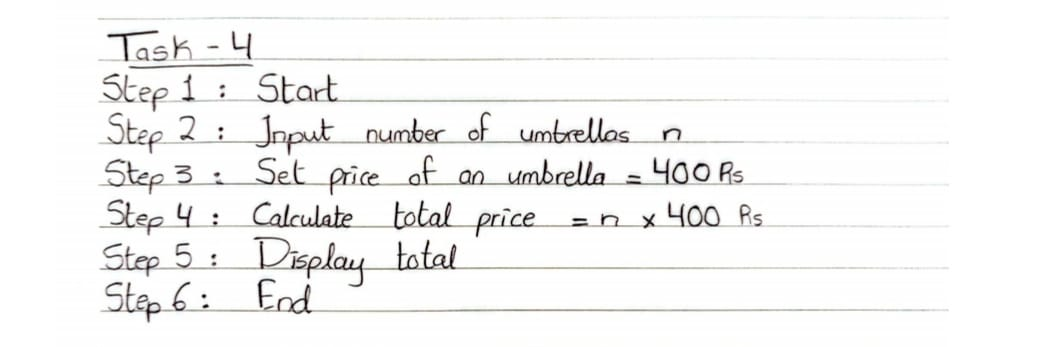 Task - 4
Step 1 : Start
Step 2 : Input number of umbrellas n
Step 3 : Set price of an umbrella = 400 Rs
Step 4 : Calculate total price = n x 400 Rs
Step 5 : Display total
Step 6 : End